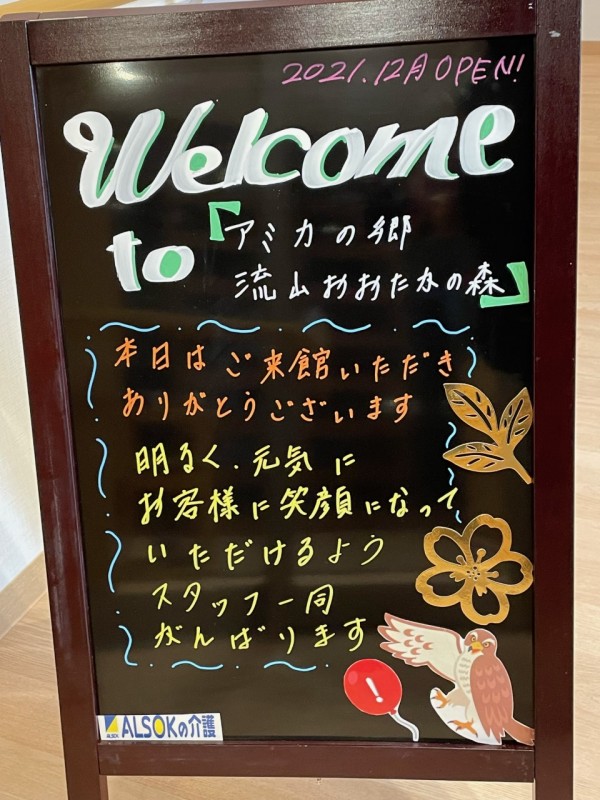 2021.12月 OPEN!
Welcome
to 「アミカの郷
流山おおたかの森」
本日はご来館いただき
ありがとうございます
明るく、元気に
お客様に笑顔になって
いただけるよう
スタッフ一同
がんばります
!
ALSOK ALSOKの介護